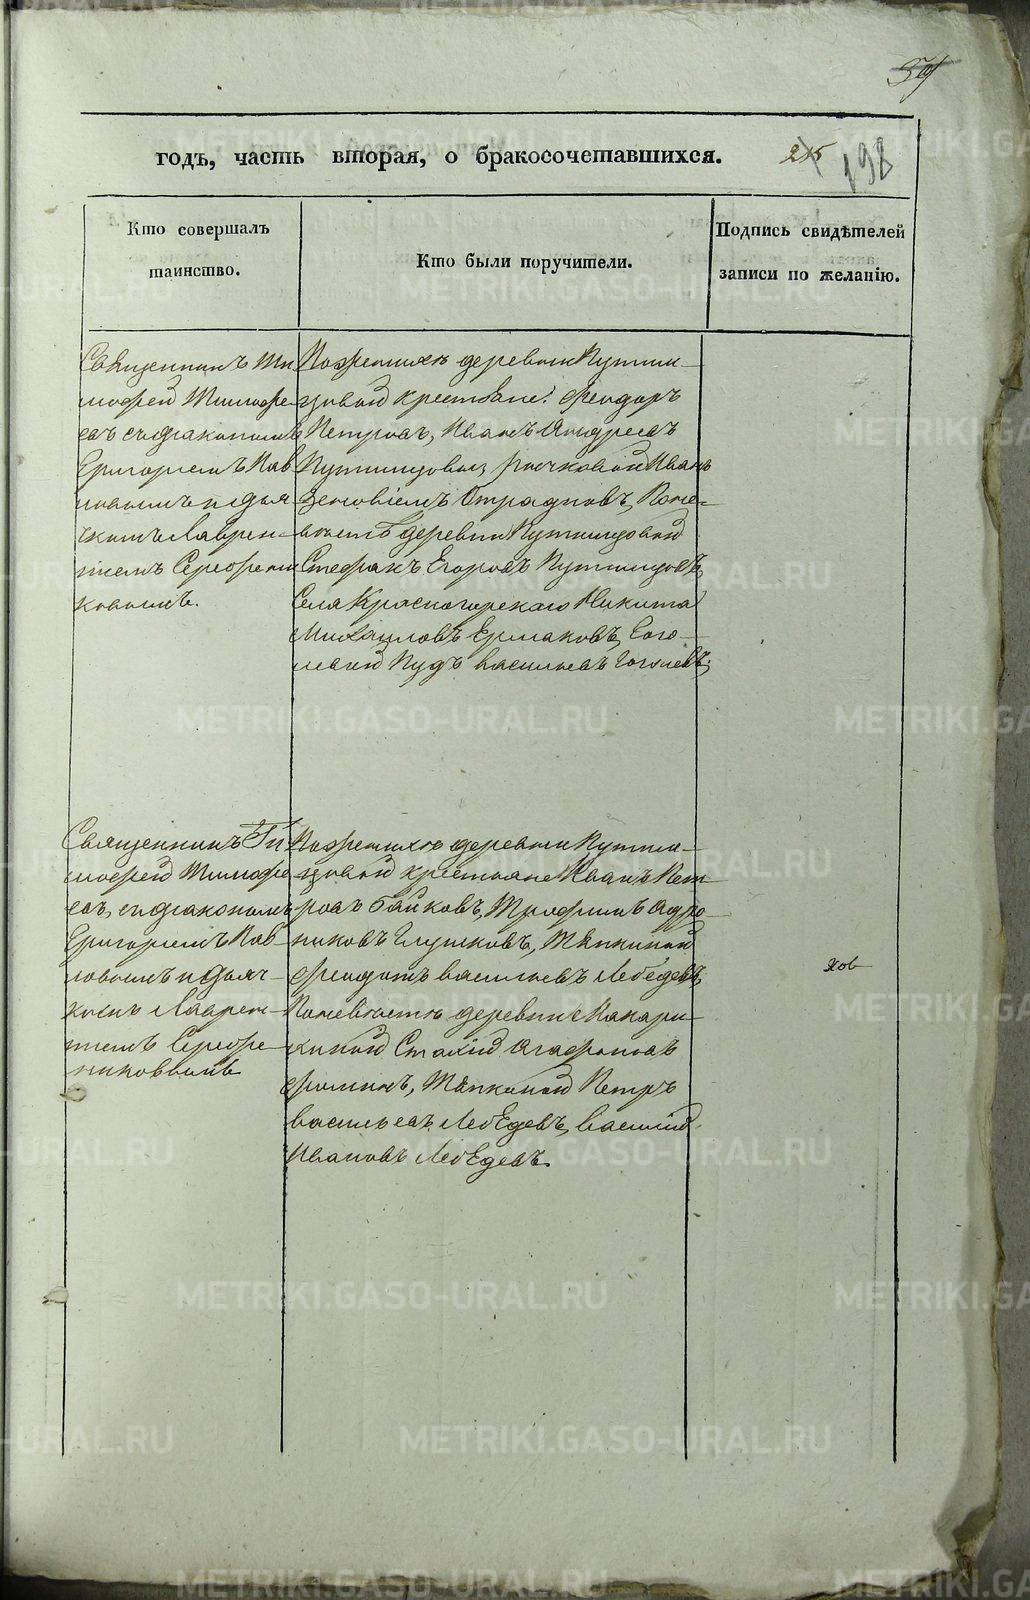 59
годъ, часть вторая, о бракосочетавшихся.
215
198
Кто совершалъ
таинство.
Кто были поручители.
Подпись свидѣтелей
записи по желанію.
Священникъ Ти
мофей Тимофе
евъ съ діакономъ
Григоріемъ Пав
ловымъ и дья
комъ Лаврен
тіемъ Серебрени
ковымъ.
По женихѣ деревни Путими
цовой крестьяне: Феодоръ
Петровъ, Иванъ Андреевъ
Иванъ
Отрадновъ, По не
вѣстѣ деревни
Стефанъ Егоровъ
Села Красногорскаго Никита
Михайловъ Ермаковъ, Гого
левой Кудъ Васильевъ Гоголевъ,
Священникъ Ти
мофей Тимофе
евъ, съ діакономъ
Григоріемъ Пав
ловымъ и дьяч
комъ Лаврен
тіемъ Серебре
никовымъ
По женихѣ деревни
цовой крестьяне Иванъ Пет
ровъ Байковъ, Трофимъ Андро
никовъ Глушковъ, Тяпкиной
Феодотъ Васильевъ Лебедевъ,
По невѣстѣ деревни Макари
хиной Стахій Агафоновъ
Фоминъ, Тяпкиной Петръ
Васильевъ Лебедевъ, Василій
Ивановъ Лебедевъ.
хов
METRIKI.GASO-URAL.RU